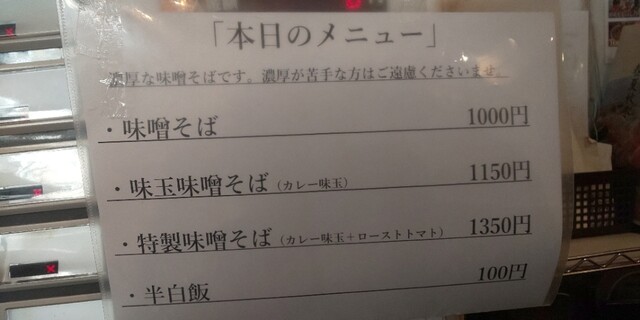 「本日のメニュー」
濃厚な味噌そばです。濃厚が苦手な方はご遠慮くださいます。
・味噌そば 1000円
・味玉味噌そば（カレー味玉） 1150円
・特製味噌そば（カレー味玉＋ローストトマト） 1350円
・半白飯 100円